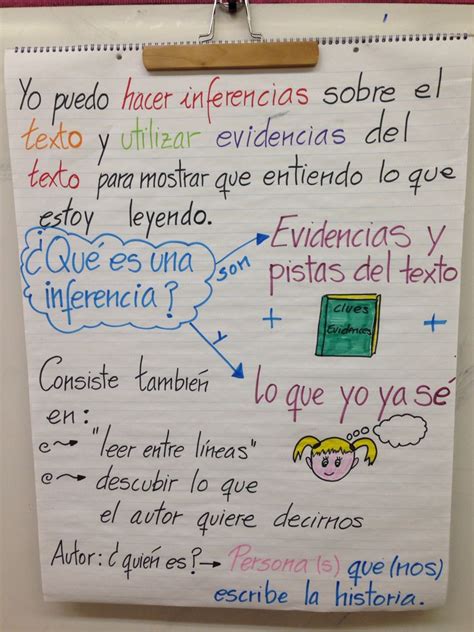 Yo puedo hacer inferencias sobre el
texto y utilizar evidencias del
texto para mostrar que entiendo lo que
estoy leyendo.
¿Qué es una
inferencia?
son
Evidencias y
pistas del texto
+
Clues
Evidences
+
y
lo que yo ya sé
Consiste también
en:
"leer entre líneas"
descubir lo que
el autor quiere decirnos
Autor: ¿quién es? → Persona(s) que (nos)
escribe la historia.